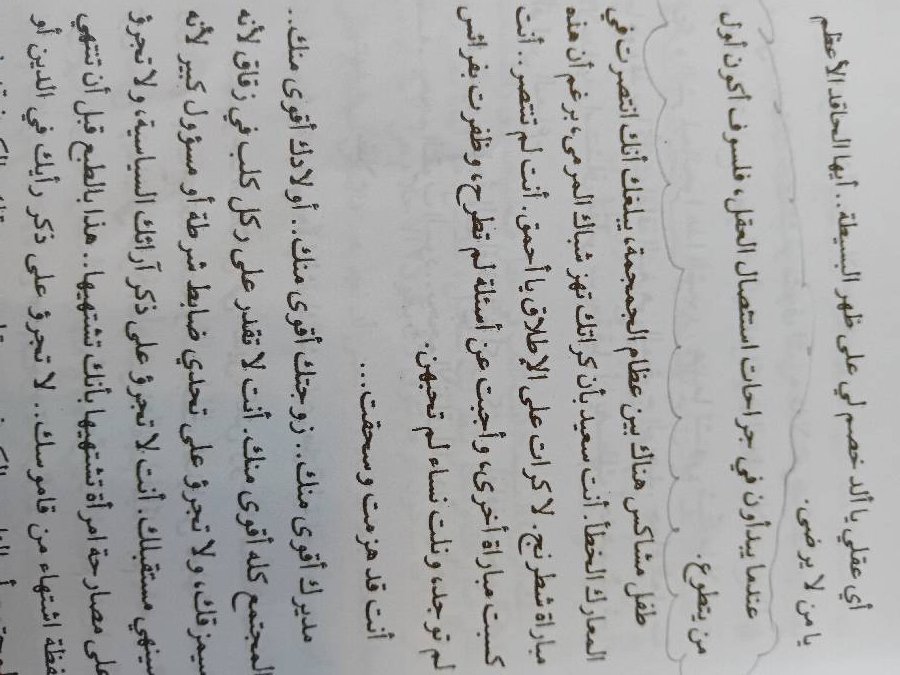 أي عقلي يا ألد خصم لي على ظهر البسيطة.. أيها الحاقد الأعظم
يا من لا يرضى.
عندما يبدأون في جراحات استئصال العقل، فلسوف أكون أول
من يتطوع.
طفل مشاكس هناك بين عظام الجمجمة، يبلغك أنك انتصرت في
المعارك الخطأ. أنت سعيد بأن كراتك تهز شباك المرمى، برغم أن هذه
مباراة شطرنج. لا كرات على الإطلاق يا أحمق. أنت لم تنتصر.. أنت
كسبت مباراة أخرى، وأجبت عن أسئلة لم تطرح، وظفرت بفرائس
لم توجد، ونلت نساء لم تحبهن.
أنت قد هزمت وسحقت...
مديرك أقوى منك.. زوجتك أقوى منك.. أولادك أقوى منك..
المجتمع كله أقوى منك. أنت لا تقدر على ركل كلب في زقاق لأنه
سيمزقك، ولا تجرؤ على تحدي ضابط شرطة أو مسؤول كبير لأنه
سينهي مستقبلك. أنت لا تجرؤ على ذكر آرائك السياسية، ولا تجرؤ
على مصارحة امرأة تشتهيها بأنك تشتهيها.. هذا بالطبع قبل أن تنتهي
لفظة اشتهاء من قاموسك.. لا تجرؤ على ذكر رأيك في الدين أو